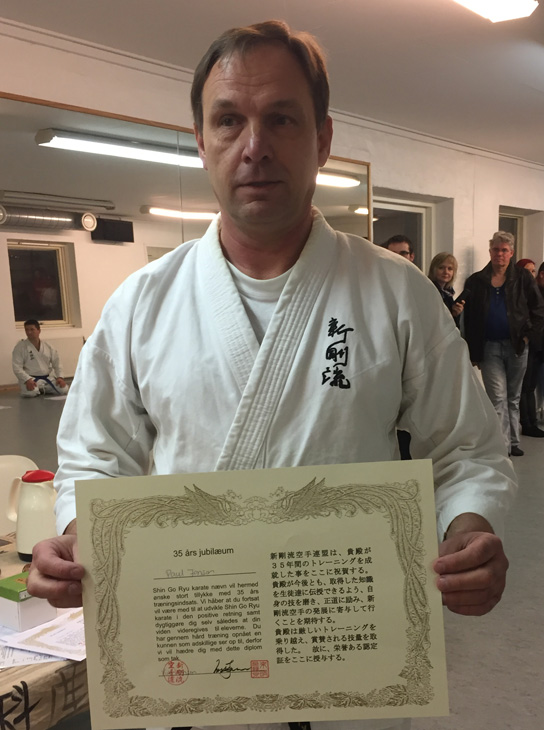 新
剛
流
35 års jubilæum
Poul Jensen
Shin Go Ryu karate nævn vil hermed
ønske stort tillykke med 35 års
træningsindsats. Vi håber at du fortsat
vil være med til at udvikle Shin Go Ryu
karate i den positive retning samt
dygtiggøre dig selv således at din
viden videregives til eleverne. Du
har gennem hård træning opnået en
kunnen som adskillige ser op til, derfor
vil vi hædre dig med dette diplom
som tak.
新剛流空手連盟は、貴殿が
35年間のトレーニングを成
就した事をここに祝賀する。
貴殿が今後とも、取得した知識
を生徒達に伝授できるよう、自
身の技を磨き、正道に励み、新
剛流空手の発展に寄与して行
くことを期待する。
貴殿は厳しいトレーニングを
乗り越え、賞賛される技量を取
得した。 故に、栄誉ある認定
証をここに授与する。
科